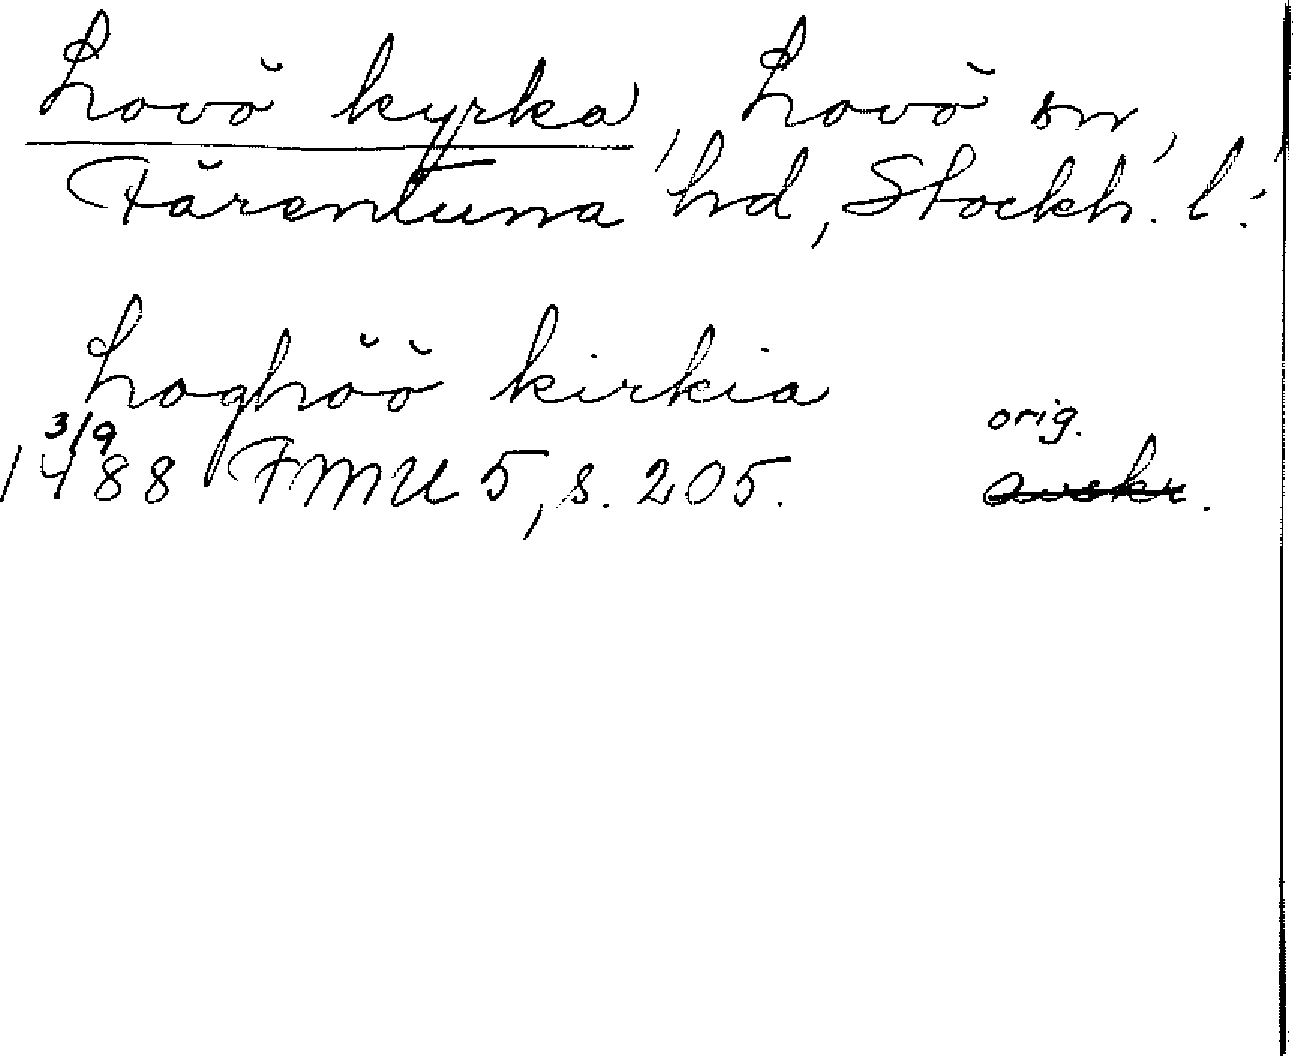 Lovö kyrka, Lovö sn,
Färentuna hd, Stockh. l.
Loghöö kirkia
3/9 orig.
1488 FMU 5, s. 205. avskr.